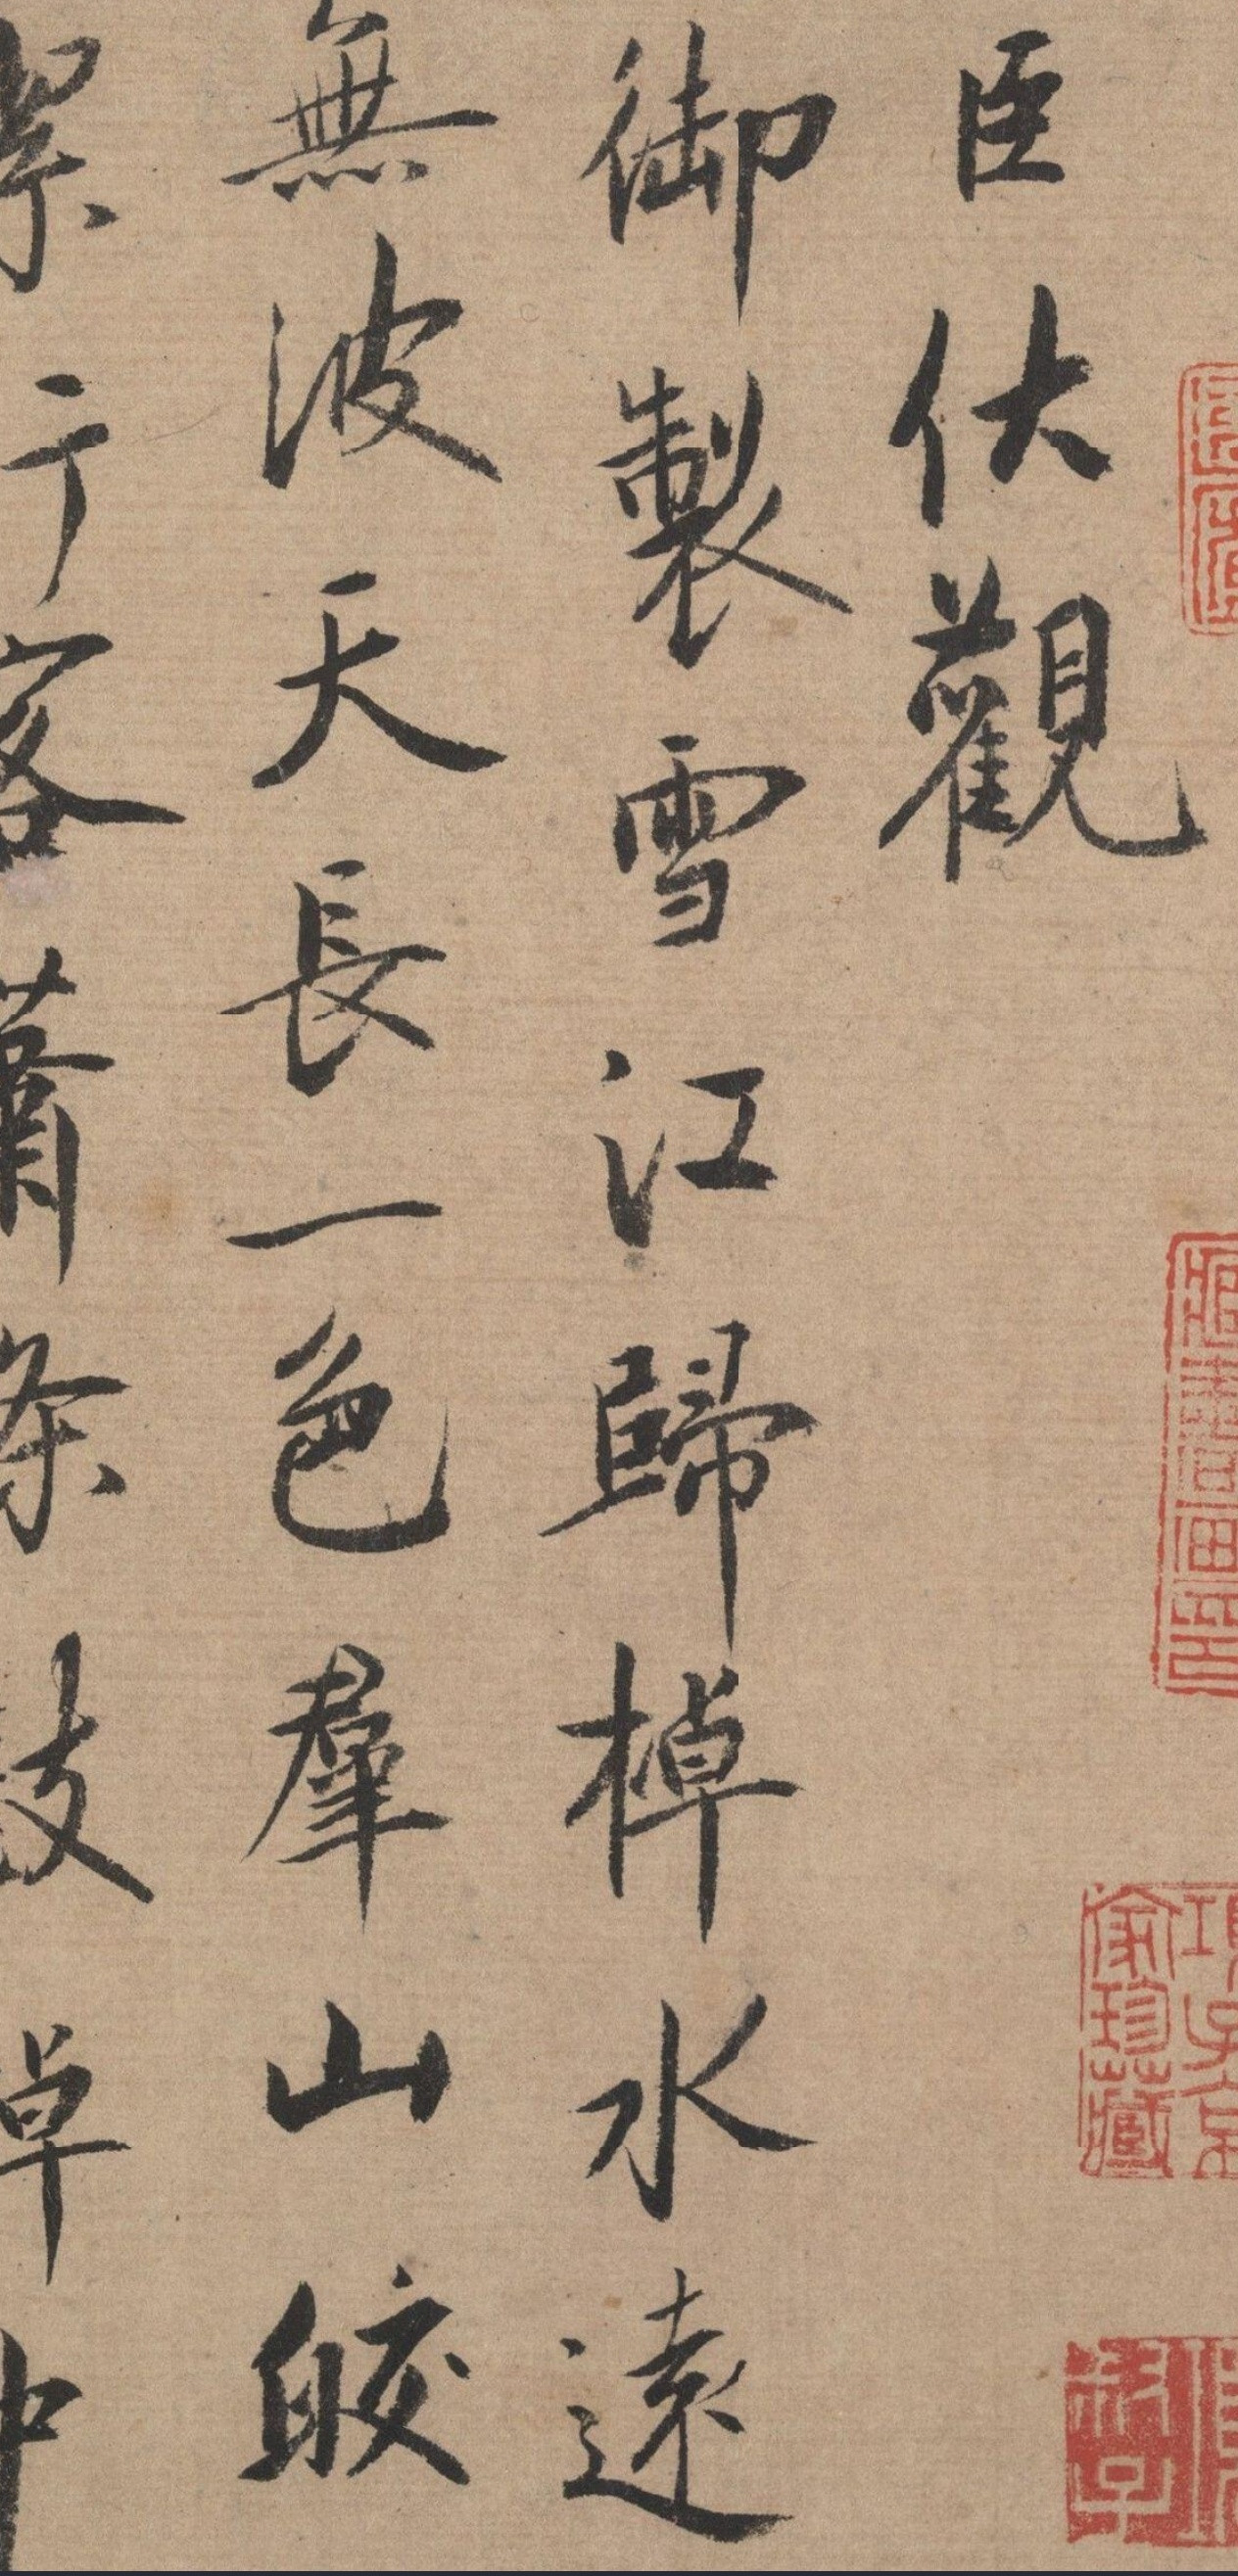 臣伏觀
御製雪江歸棹水遠
無波天長一色羣山皎
潔行客蕭条鼓棹中